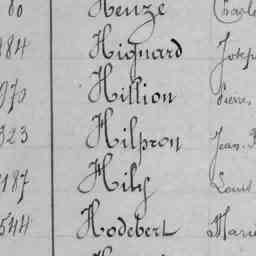 80 Heuze Charles
184 Hignard Josep
970 Hillion Pierre,
323 Hilpron Jean
187 Hily Louis
544 Hodebert Marie